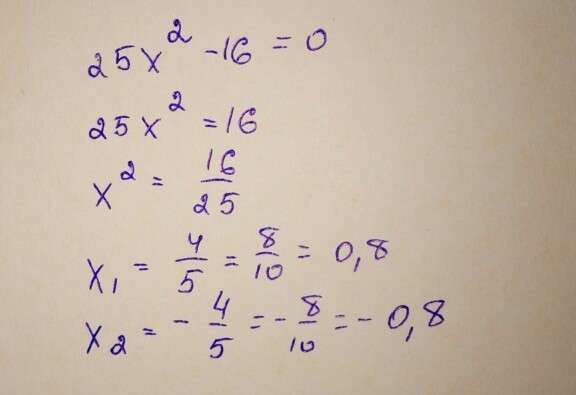 25x² -16 = 0
25x² = 16
x² = 16/25
x₁ = 4/5 = 8/10 = 0,8
x₂ = - 4/5 = - 8/10 = - 0,8